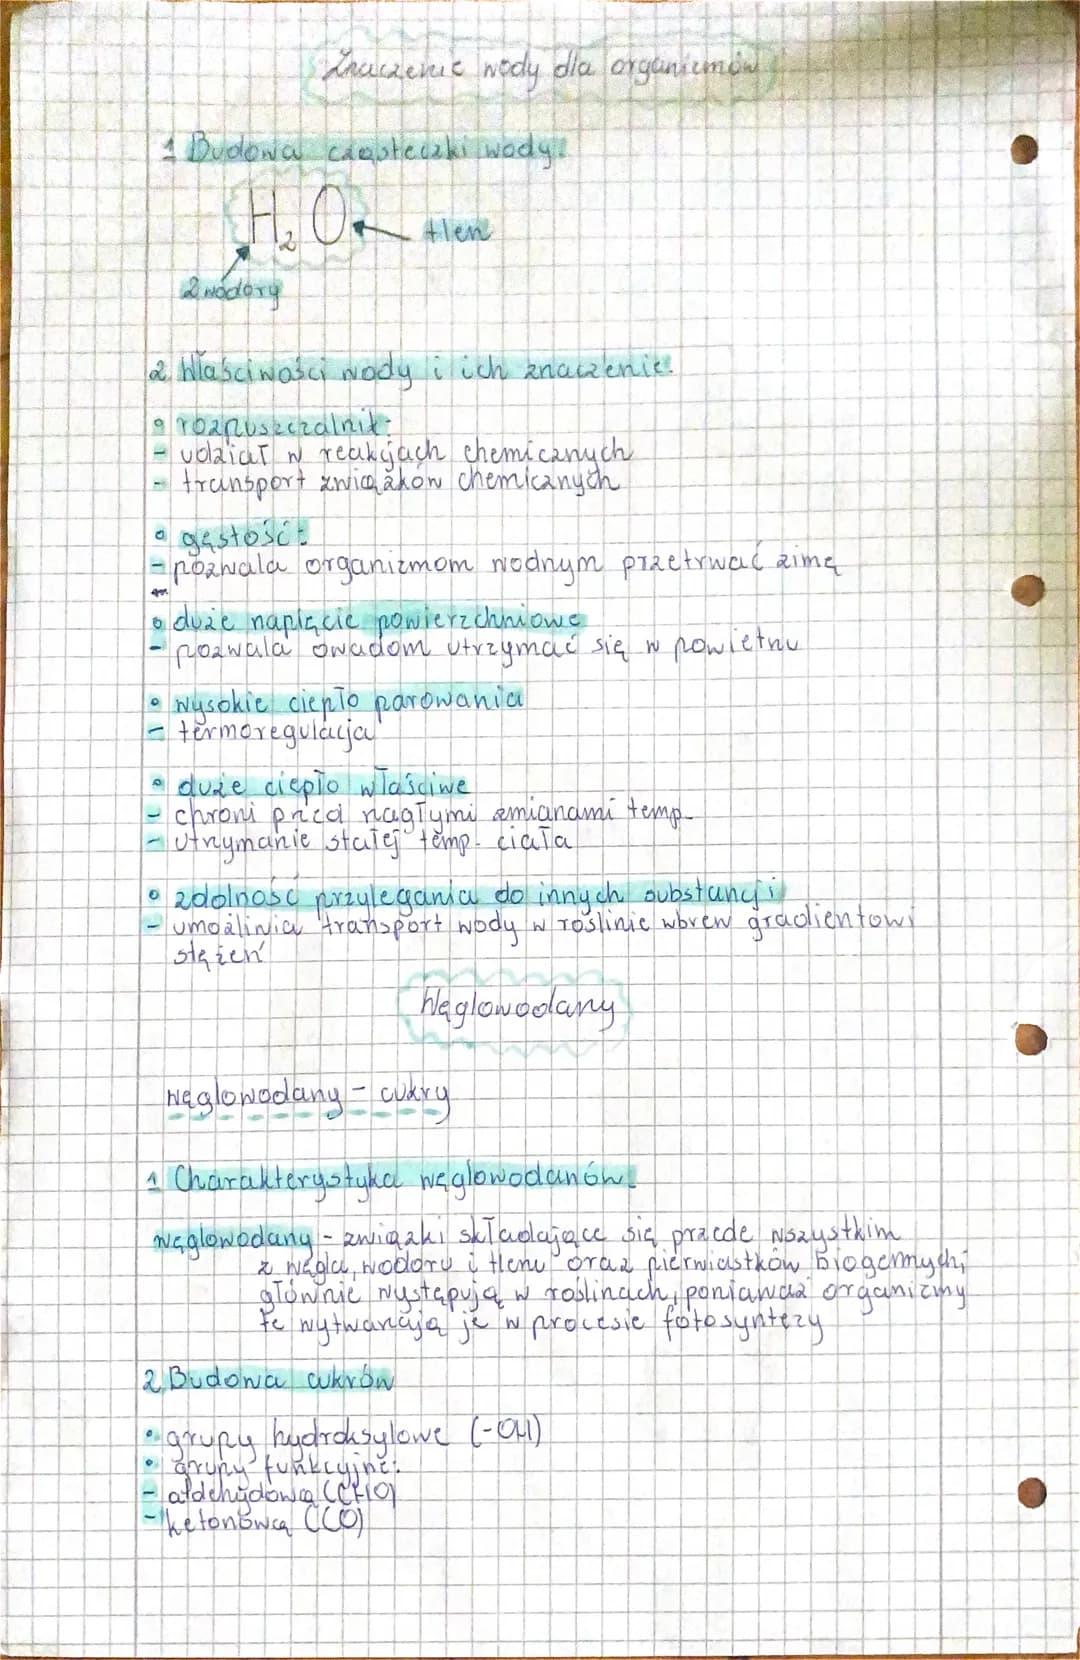 Znaczenie wody dla organizmów
1 Budowa cząsteczki wody.
H₂O
tlen
2 wodory
2 Właściwości wody i ich znaczenie.
• rozpuszczalnik:
- udział w reakcjach chemicznych
- transport związków chemicznych
• gęstość:
- pozwala organizmom wodnym przetrwać zimę
• duże napięcie powierzchniowe
- pozwala owadom utrzymać się w powietrzu
• wysokie ciepło parowania
- termoregulacja
• duże ciepło właściwe
- chroni przed nagłymi zmianami temp.
- utrzymanie stałej temp. ciała
• zdolność przylegania do innych substancji
- umożliwia transport wody w roślinie wbrew gradientowi
stężeń
Węglowodany
węglowodany - cukry
1 Charakterystyka węglowodanów.
węglowodany - związki składające się przede wszystkim
z węgla, wodoru i tlenu oraz pierwiastków biogennych;
głównie występują w roślinach, ponieważ organizmy
te wytwarzają je w procesie fotosyntezy
2 Budowa cukrów
• grupy hydroksylowe (-OH)
• grupy funkcyjne:
- aldehydowa (CHO)
- ketonowa (CO)